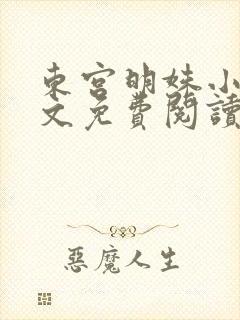 東宮明姝小
文免費閱讀
惡魔人生